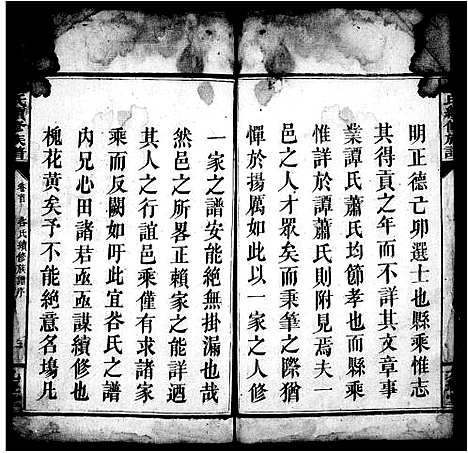 明正德己卯選士也縣乘惟志
其得貢之年而不詳其文章事
業譚氏蕭氏均節孝也而縣乘
惟詳於譚蕭氏則附見焉夫一
邑之人才眾矣而秉筆之際猶
憚於揚厲如此以一家之人修
一家之譜安能無掛漏也哉
然邑之所畧正賴家之能詳迺
其人之行誼邑乘僅有求諸家
乘而反闕如吁此宜呇氏之譜
內兄心田諸君亟亟謀續修也
槐花黃矣予不能絶意名塲凡
卷首 呇氏續修族譜序